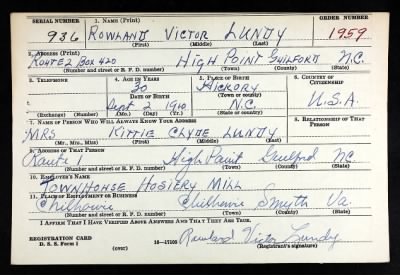 SERIAL NUMBER 1. NAME (Print) ORDER NUMBER
936 ROWLAND VICTOR LUNDY 1959
(First) (Middle) (Last)
2. ADDRESS (Print)
ROUTE 2 BOX 420 HIGH POINT GUILFORD N.C.
(Number and street or R. F. D. number) (Town) (County) (State)
3. TELEPHONE 4. AGE IN YEARS 5. PLACE OF BIRTH 6. COUNTRY OF CITIZENSHIP
30 HICKORY
DATE OF BIRTH (Town or county)
Sept 2 1910 N.C. U.S.A.
(Exchange) (Number) (Mo.) (Day) (Yr.) (State or country)
7. NAME OF PERSON WHO WILL ALWAYS KNOW YOUR ADDRESS 8. RELATIONSHIP OF THAT PERSON
MRS KITTIE CLYDE LUNDY
(Mr., Mrs., Miss) (First) (Middle) (Last)
9. ADDRESS OF THAT PERSON
Route 1 High Point Guilford NC
(Number and street or R. F. D. number) (Town) (County) (State)
10. EMPLOYER'S NAME
TOWNHOHSE HOSIERY MILL
11. PLACE OF EMPLOYMENT OR BUSINESS
Chilhowie Chilhowie Smyth Va.
(Number and street or R. F. D. number) (Town) (County) (State)
I AFFIRM THAT I HAVE VERIFIED ABOVE ANSWERS AND THAT THEY ARE TRUE.
REGISTRATION CARD
D. S. S. Form 1 (over) 16—17105 Rowland Victor Lundy
(Registrant's signature)